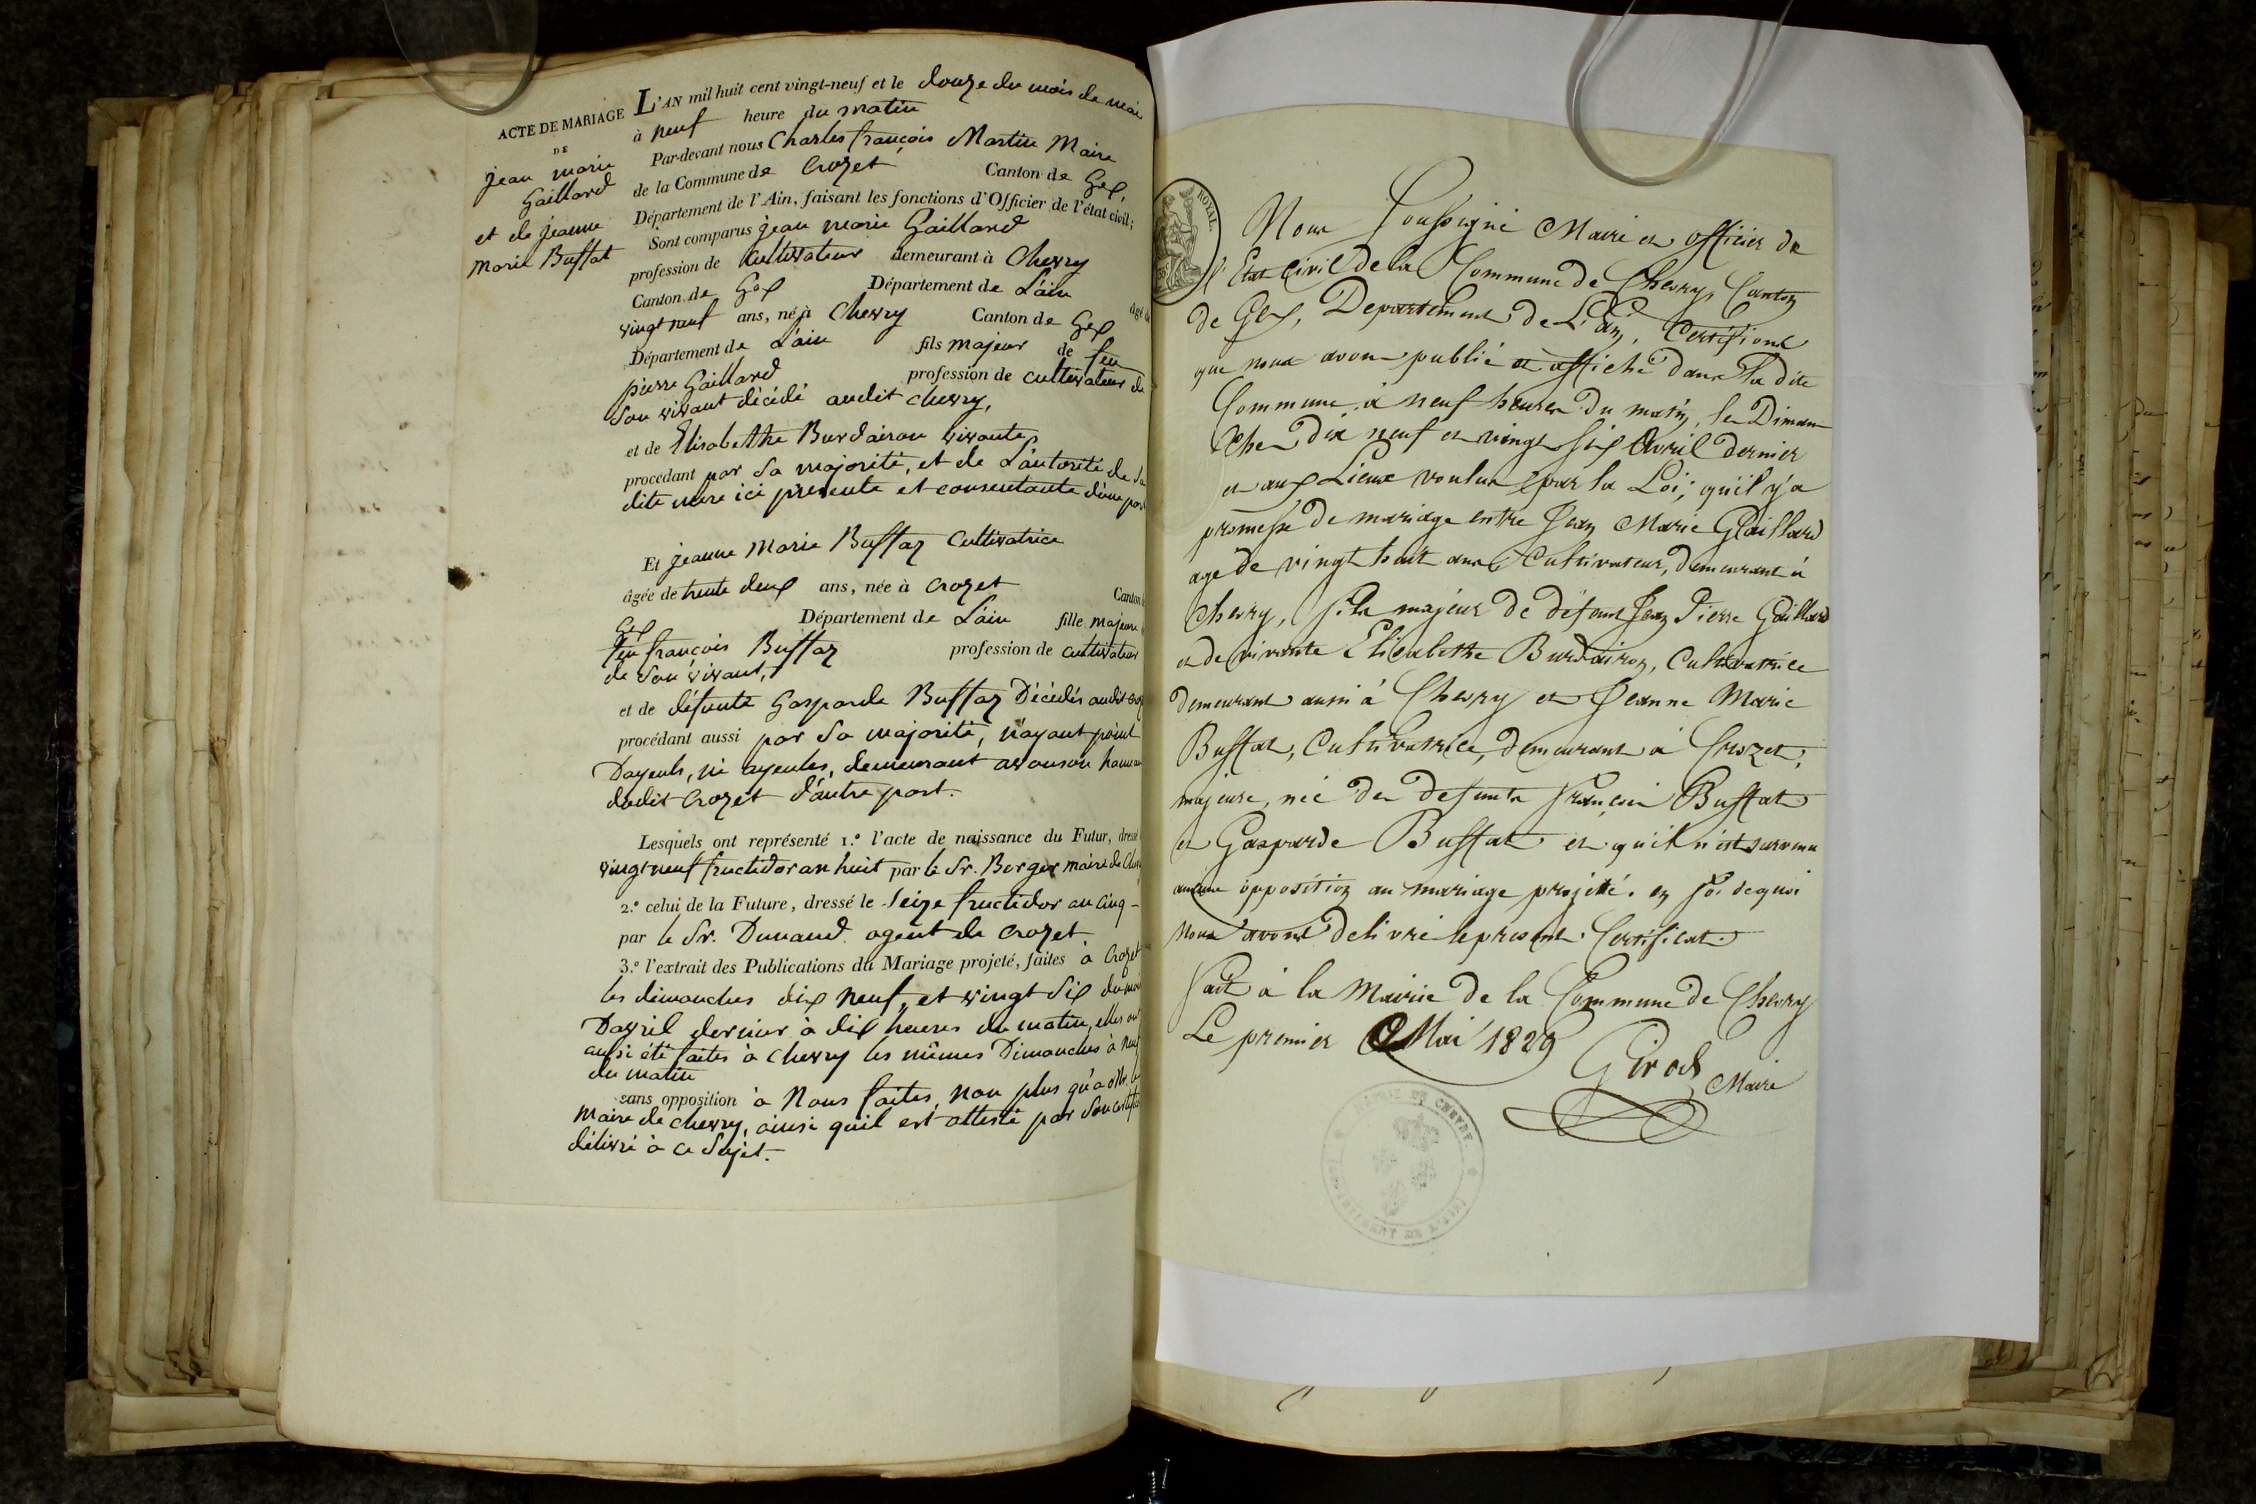 ACTE DE MARIAGE
DE
jean marie
Gaillard
et de jeanne
Marie Buffat
L'AN mil huit cent vingt-neuf et le douze du mois de mai
à neuf heure du matin
Par-devant nous Charles françois Martin Maire
de la Commune de Crozet Canton de Gex,
Département de l'Ain, faisant les fonctions d'Officier de l'état civil;
Sont comparus jean marie Gaillard
profession de cultivateur demeurant à Chevry
Canton de Gex Département de L'ain âgé de
vingt neuf ans, né à Chevry Canton de Gex
Département de L'ain fils majeur de feu
pierre Gaillard profession de cultivateur de
son vivant décédé audit chevry,
et de Elisabethe Burdairon vivante
procédant par sa majorité, et de L'autorité de sa
dite mere ici presente et consentante d'une part
Et jeanne Marie Buffaz Cultivatrice
âgée de trente deux ans, née à Crozet Canton
Gex Département de L'ain fille majeure
feu françois Buffaz profession de cultivateur
de son vivant,
et de défunte Gasparde Buffaz Décédés audit
procédant aussi par sa majorité, n'ayant point
Dayeuls, ni ayeules, demeurant avouson hameau
dudit Crozet d'autre part.
Lesquels ont représenté 1.º l'acte de naissance du Futur, dressé
vingt neuf fructidor an huit par le Sr. Berger maire de
2.º celui de la Future, dressé le seize fructidor an cinq -
par le Sr. Dunand agent de crozet.
3.º l'extrait des Publications du Mariage projeté, faites à Crozet
les dimanches dix neuf, et vingt six du mois
Davril dernier à dix heures du matin, elles ont
aussi été faites à chevry les mêmes Dimanches à neuf
du matin
sans opposition à Nous faites, non plus qu'a Mr. le
Maire de chevry, ainsi quil est attesté par son certificat
délivré à ce sujet.
ROYAL.
Nous Soussigné Maire et officier de
l'Etat Civil de la Commune de Chevry, Canton
de Gex, Departement de L'Ain, Certifions
que nous avons publié et affiché dans la dite
Commune, à neuf heures du matin, les Diman
ches dix neuf et vingt six Avril dernier
et aux Lieux voulus par la Loi; qu'il y'a
promesse de mariage entre Jean Marie Gaillard
agé de vingt huit ans, Cultivateur, demeurant à
Chevry, fils majeur de défunt Jean Pierre Gaillard
et de vivante Elisabethe Burdairon, Cultivatrice
demeurant aussi à Chevry et Jeanne Marie
Buffat, Cultivatrice, demeurant à Crozet,
majeure, née des defunts François Buffat
et Gasparde Buffat et qu'il n'est survenu
aucune opposition au mariage projetté. en foi de quoi
Nous avons delivré le present Certificat.
Fait à la Mairie de la Commune de Chevry
Le premier Mai 1829
Girod, Maire
MAIRIE DE CHEVRY
DEPARTEMENT DE L'AIN